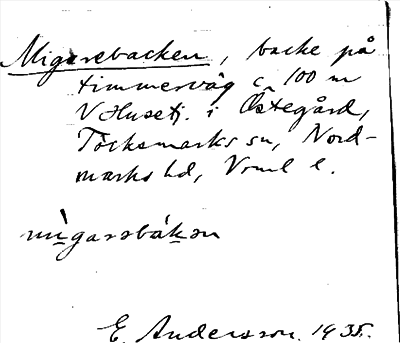 Migarebacken, backe på
timmerväg c. 100 m
V Husetj. i Östegård,
Töcksmarks sn, Nord-
marks hd, Vrml l.
mìgarəbákən
E. Andersson. 1935.